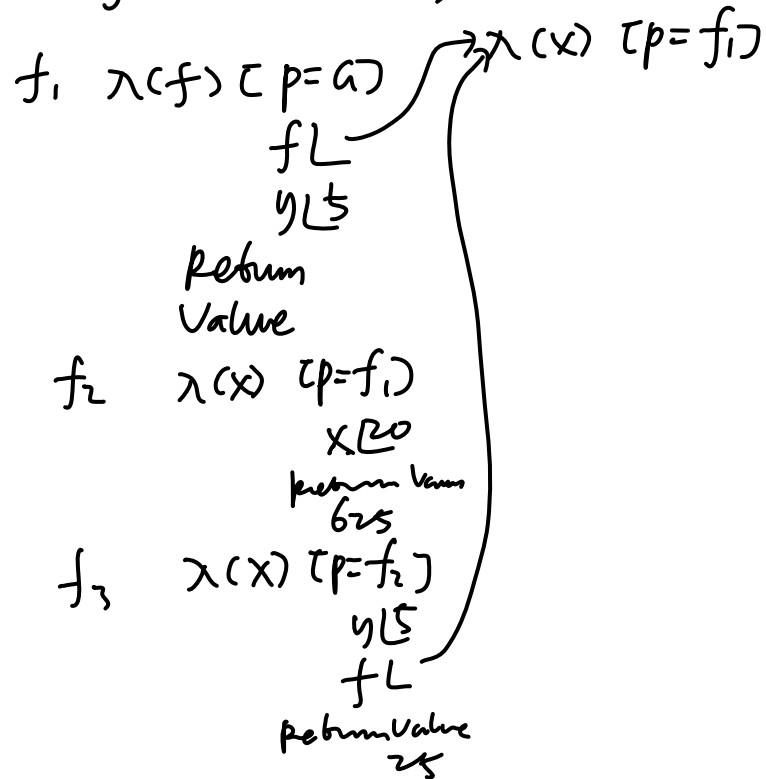 λ(x) [p=f₁]
f₁ λ(f) [p=G]
f
y 5
Return
Value
f₂ λ(x) [p=f₁]
x 20
Return
625
f₃ λ(x) [p=f₂]
y 5
f
Return Value
25